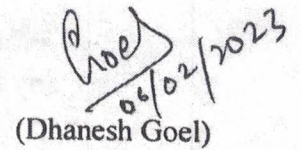 Goel
06/02/2023
(Dhanesh Goel)